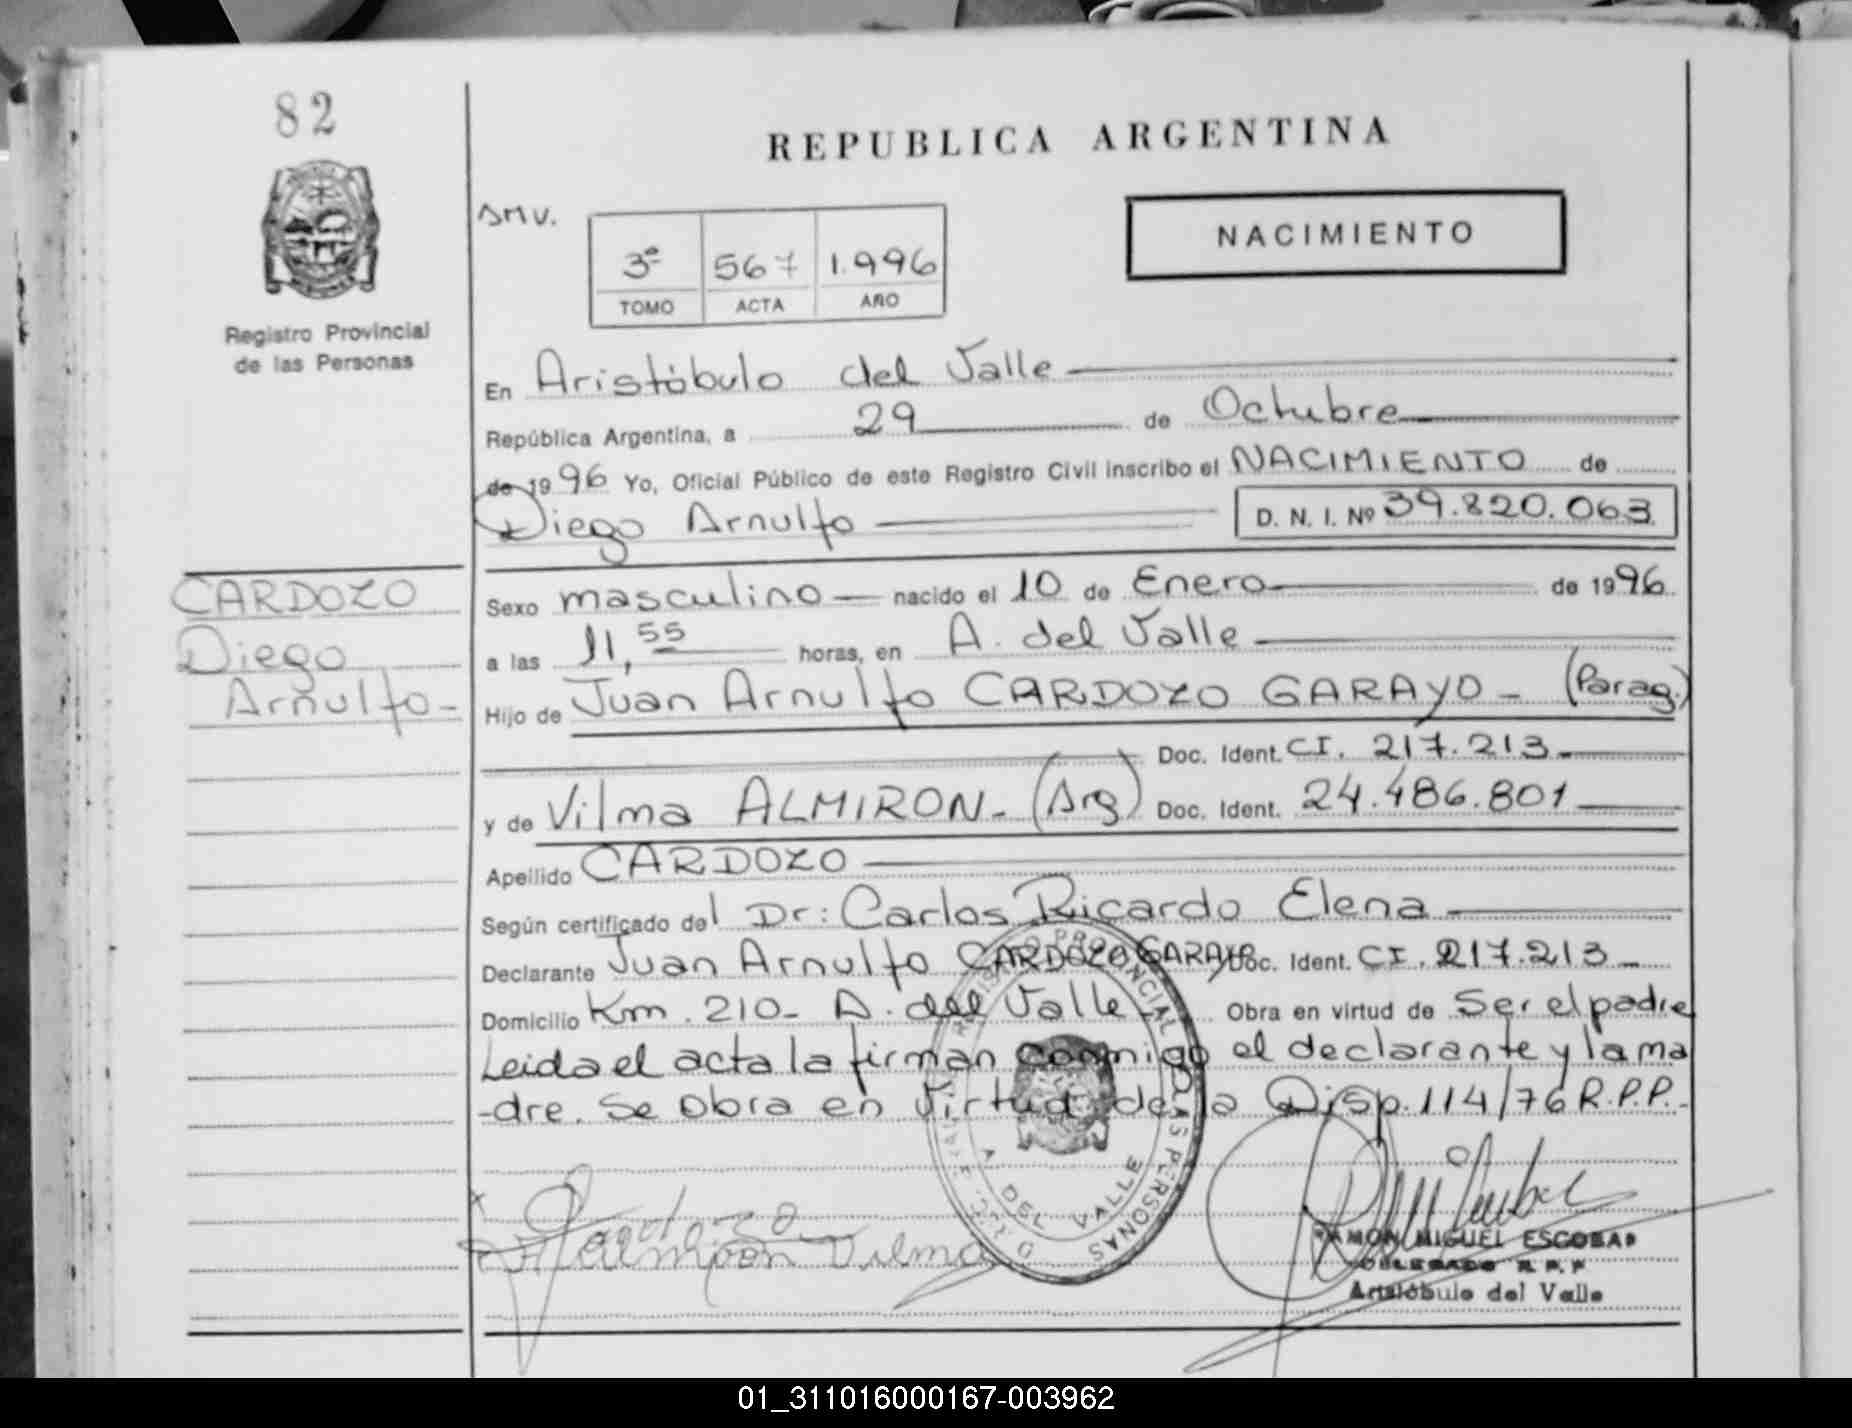 82
REPUBLICA ARGENTINA
NACIMIENTO
3º 567 1.996
TOMO ACTA AÑO
Registro Provincial
de las Personas
En Aristóbulo del Valle
República Argentina, a 29 de Octubre
de 1996 Yo, Oficial Público de este Registro Civil inscribo el NACIMIENTO de
Diego Arnulfo
D. N. I. Nº 39.820.063
CARDOZO
Diego
Arnulfo-
Sexo masculino nacido el 10 de Enero de 1996
a las 11,55 horas, en A. del Valle
Hijo de Juan Arnulfo CARDOZO GARAYO - (Parag.)
Doc. Ident. CI. 217.213-
y de Vilma ALMIRON- (Arg) Doc. Ident. 24.486.801
Apellido CARDOZO
Según certificado del Dr: Carlos Ricardo Elena
Declarante Juan Arnulfo CARDOZO GARAYO Doc. Ident. CI. 217.213-
Domicilio Km. 210- A. del Valle- Obra en virtud de Ser el padre
Leida el acta la firman conmigo el declarante y la ma
-dre. Se obra en virtud de la Disp. 114/76 R.P.P.-
REGISTRO PROVINCIAL DE LAS PERSONAS
A. DEL VALLE
Cardozo
Almiron Vilma
RAMON MIGUEL ESCOBAR
DELEGADO R.P.P
Aristóbulo del Valle
01_311016000167-003962